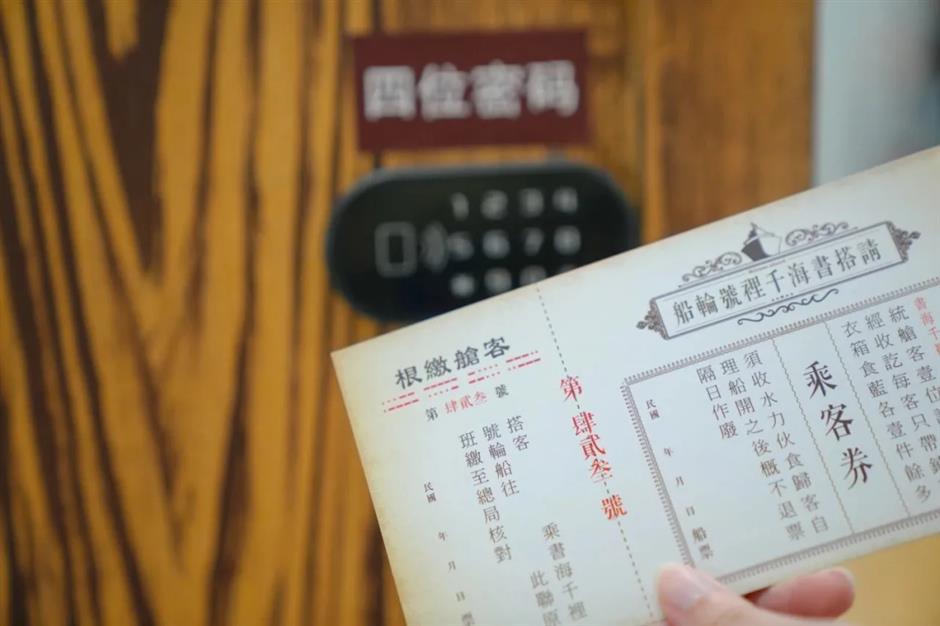 四位密码
1 2 3 4
5 6 7 8
請搭書海千裡號輪船
書海千
統艙客壹位
經收訖每客只帶
衣箱食藍各壹件餘多
乘客券
須收水力伙食歸客自
理船開之後概不退票
隔日作廢
民國 年 月 日 船票
第肆貳叁號
客艙繳根
第 肆貳叁 號
搭客 乘書海千裡
號輪船往 此聯原
班繳至總局核對
民國 年 月 日 票